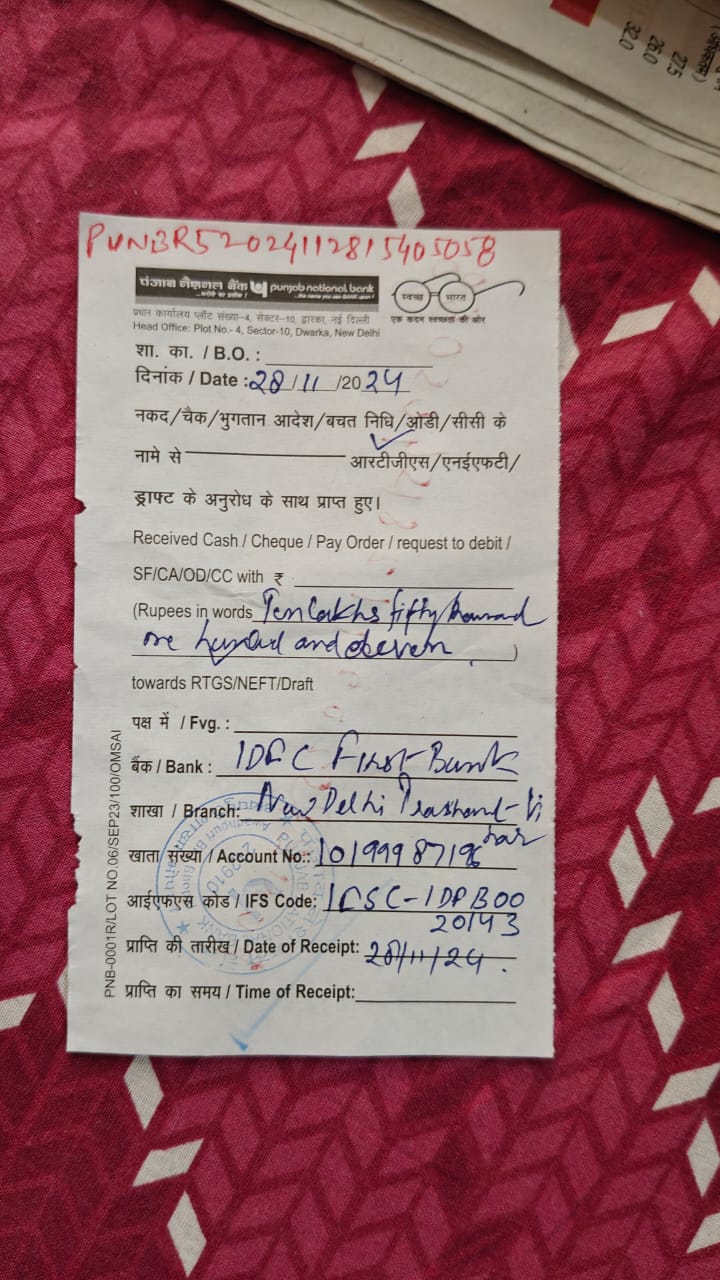 PUNBR52024112815405058
पंजाब नैशनल बैंक punjab national bank
...भरोसे का प्रतीक! ...the name you can BANK upon!
स्वच्छ भारत
एक कदम स्वच्छता की ओर
प्रधान कार्यालय प्लॉट संख्या–4, सेक्टर–10, द्वारका, नई दिल्ली
Head Office: Plot No.- 4, Sector-10, Dwarka, New Delhi
शा. का. / B.O. :
दिनांक / Date : 28/11/2024
नकद/चैक/भुगतान आदेश/बचत निधि/ओडी/सीसी के
नामे से आरटीजीएस/एनईएफटी/
ड्राफ्ट के अनुरोध के साथ प्राप्त हुए।
Received Cash / Cheque / Pay Order / request to debit /
SF/CA/OD/CC with ₹
(Rupees in words Ten Lakhs fifty thousand
one hundred and eleven )
towards RTGS/NEFT/Draft
पक्ष में / Fvg. :
बैंक / Bank : IDFC First Bank
शाखा / Branch: New Delhi Prashant Vi
har
खाता संख्या / Account No.: 10199987196
आईएफएस कोड / IFS Code: IFSC-IDFB00
20143
प्राप्ति की तारीख / Date of Receipt: 28/11/24.
प्राप्ति का समय / Time of Receipt:
PNB-0001R/LOT NO.06/SEP23/100/OMSAI
27.5
26.0
32.0